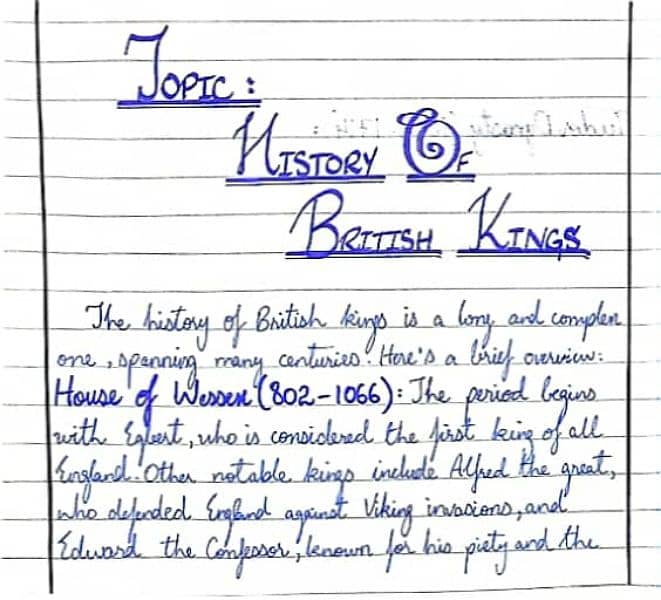 TOPIC :
HISTORY OF
BRITISH KINGS
The history of British kings is a long and complex
one, spanning many centuries. Here's a brief overview:
House of Wessex (802-1066): The period begins
with Egbert, who is considered the first king of all
England. Other notable kings include Alfred the great,
who defended England against Viking invasions, and
Edward the Confessor, known for his piety and the